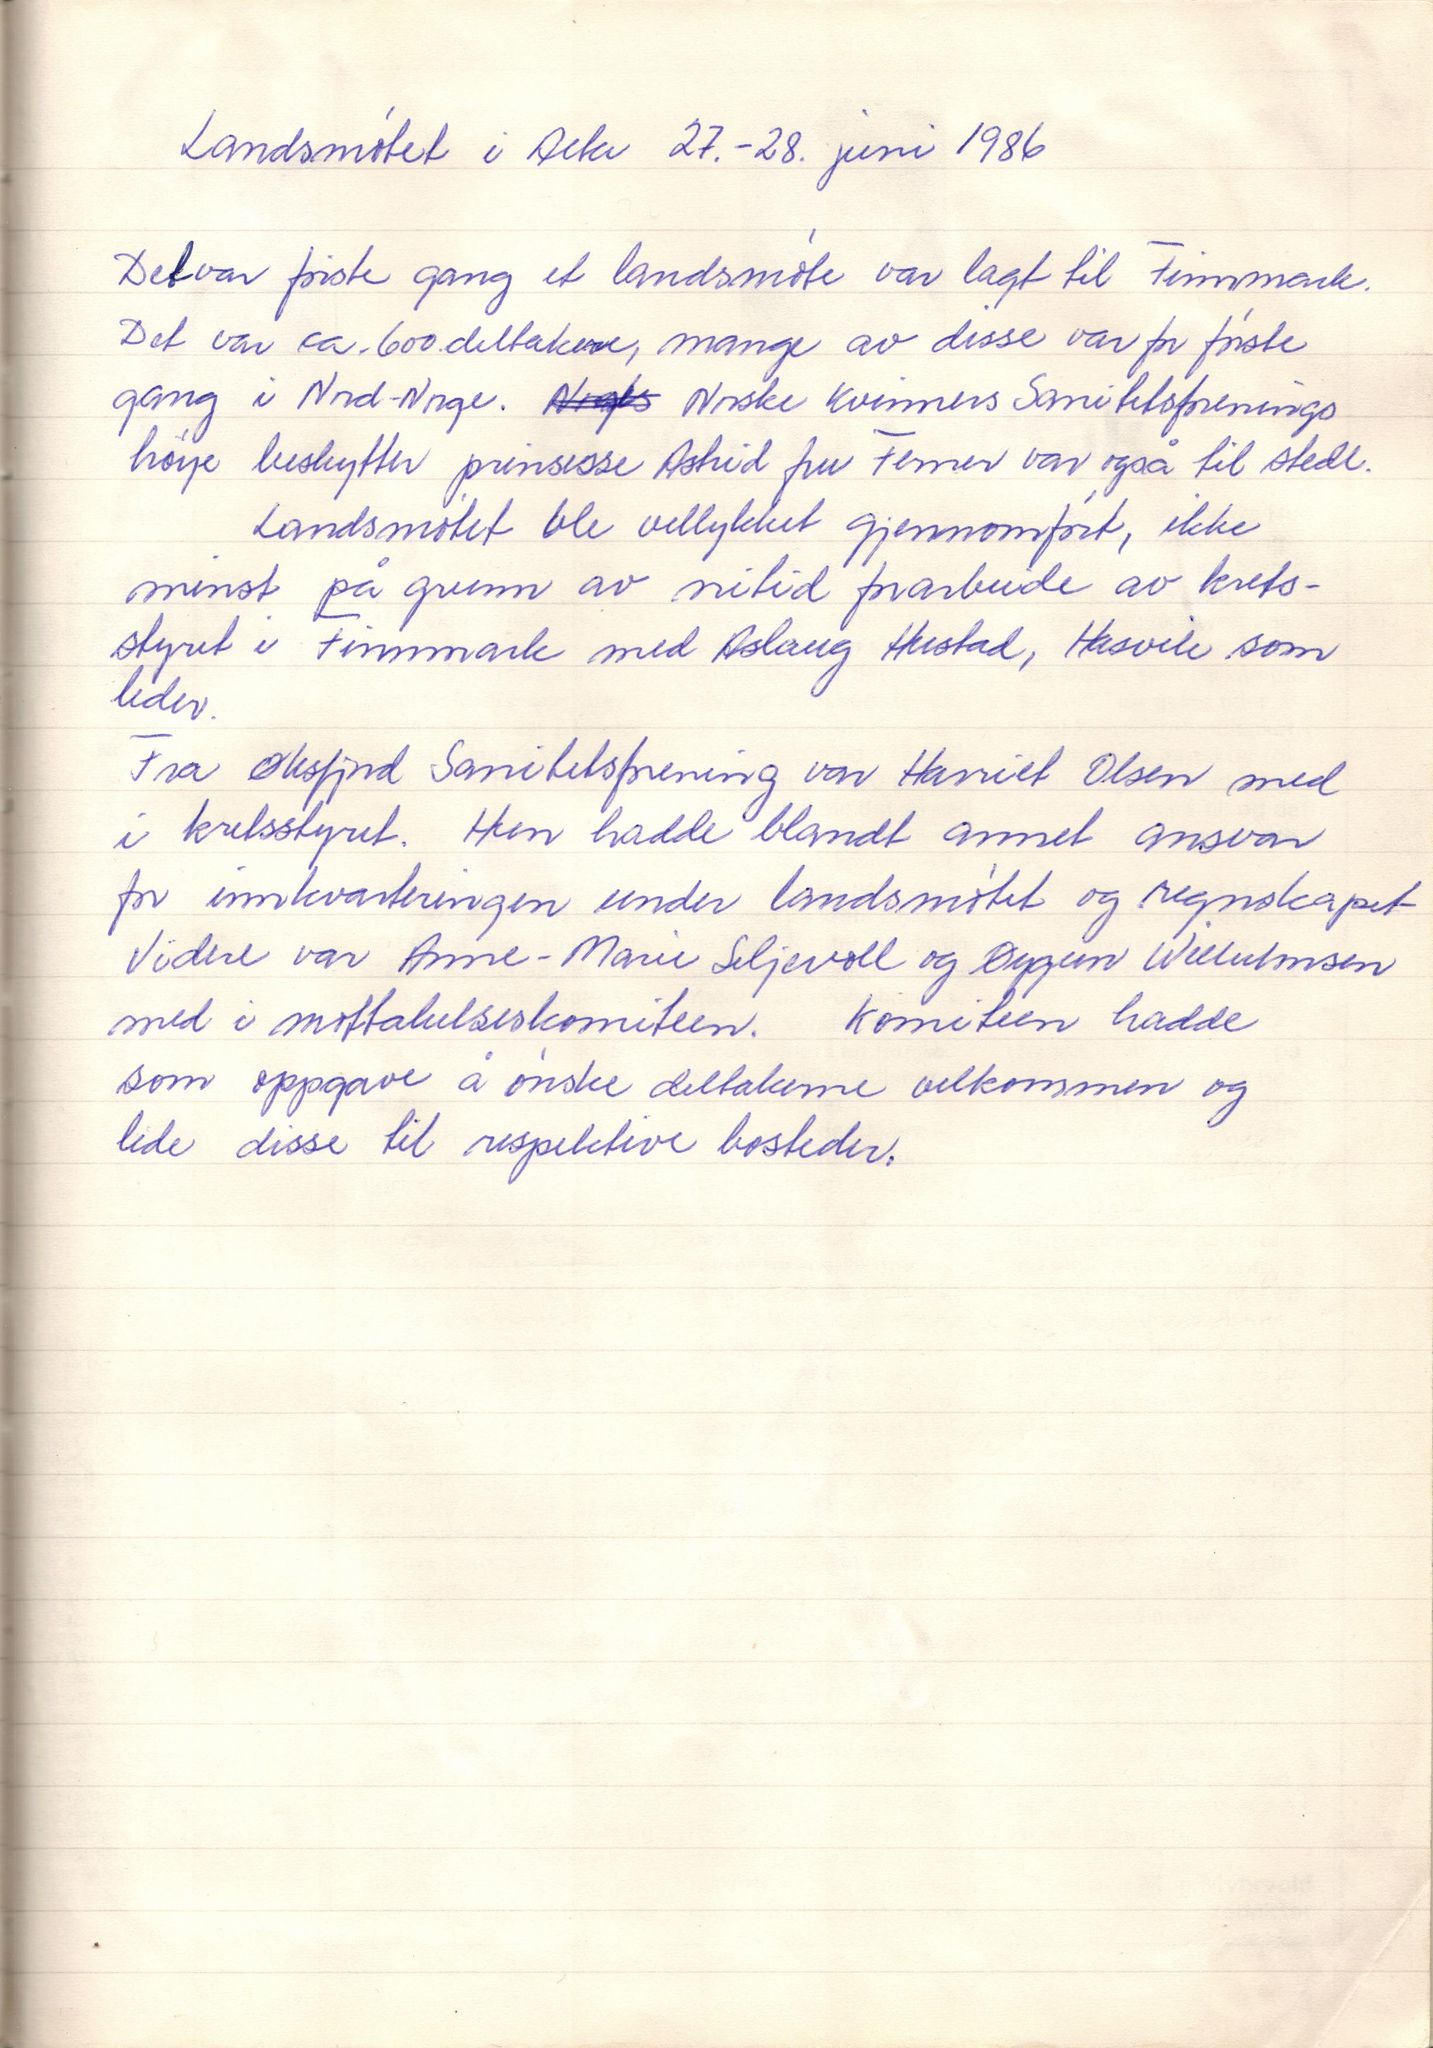 Landsmøtet i Alta 27.-28. juni 1986
Det var første gang et landsmøte var lagt til Finnmark.
Det var ca. 600 deltakere, mange av disse var for første
gang i Nord-Norge. Norske Kvinners Sanitetsforenings
høye beskytter prinsesse Astrid fru Ferner var også til stede.
Landsmøtet ble vellykket gjennomført, ikke
minst på grunn av nitid forarbeide av krets-
styret i Finnmark med Aslaug Hustad, Hasvik som
leder.
Fra Øksfjord Sanitetsforening var Harriet Olsen med
i kretsstyret. Hun hadde blandt annet ansvar
for innkvarteringen under landsmøtet og regnskapet
Videre var Anne-Marie Seljevoll og Oygun Willumsen
med i mottakelseskomiteen. Komiteen hadde
som oppgave å ønske deltakerne velkommen og
lede disse til respektive bosteder.